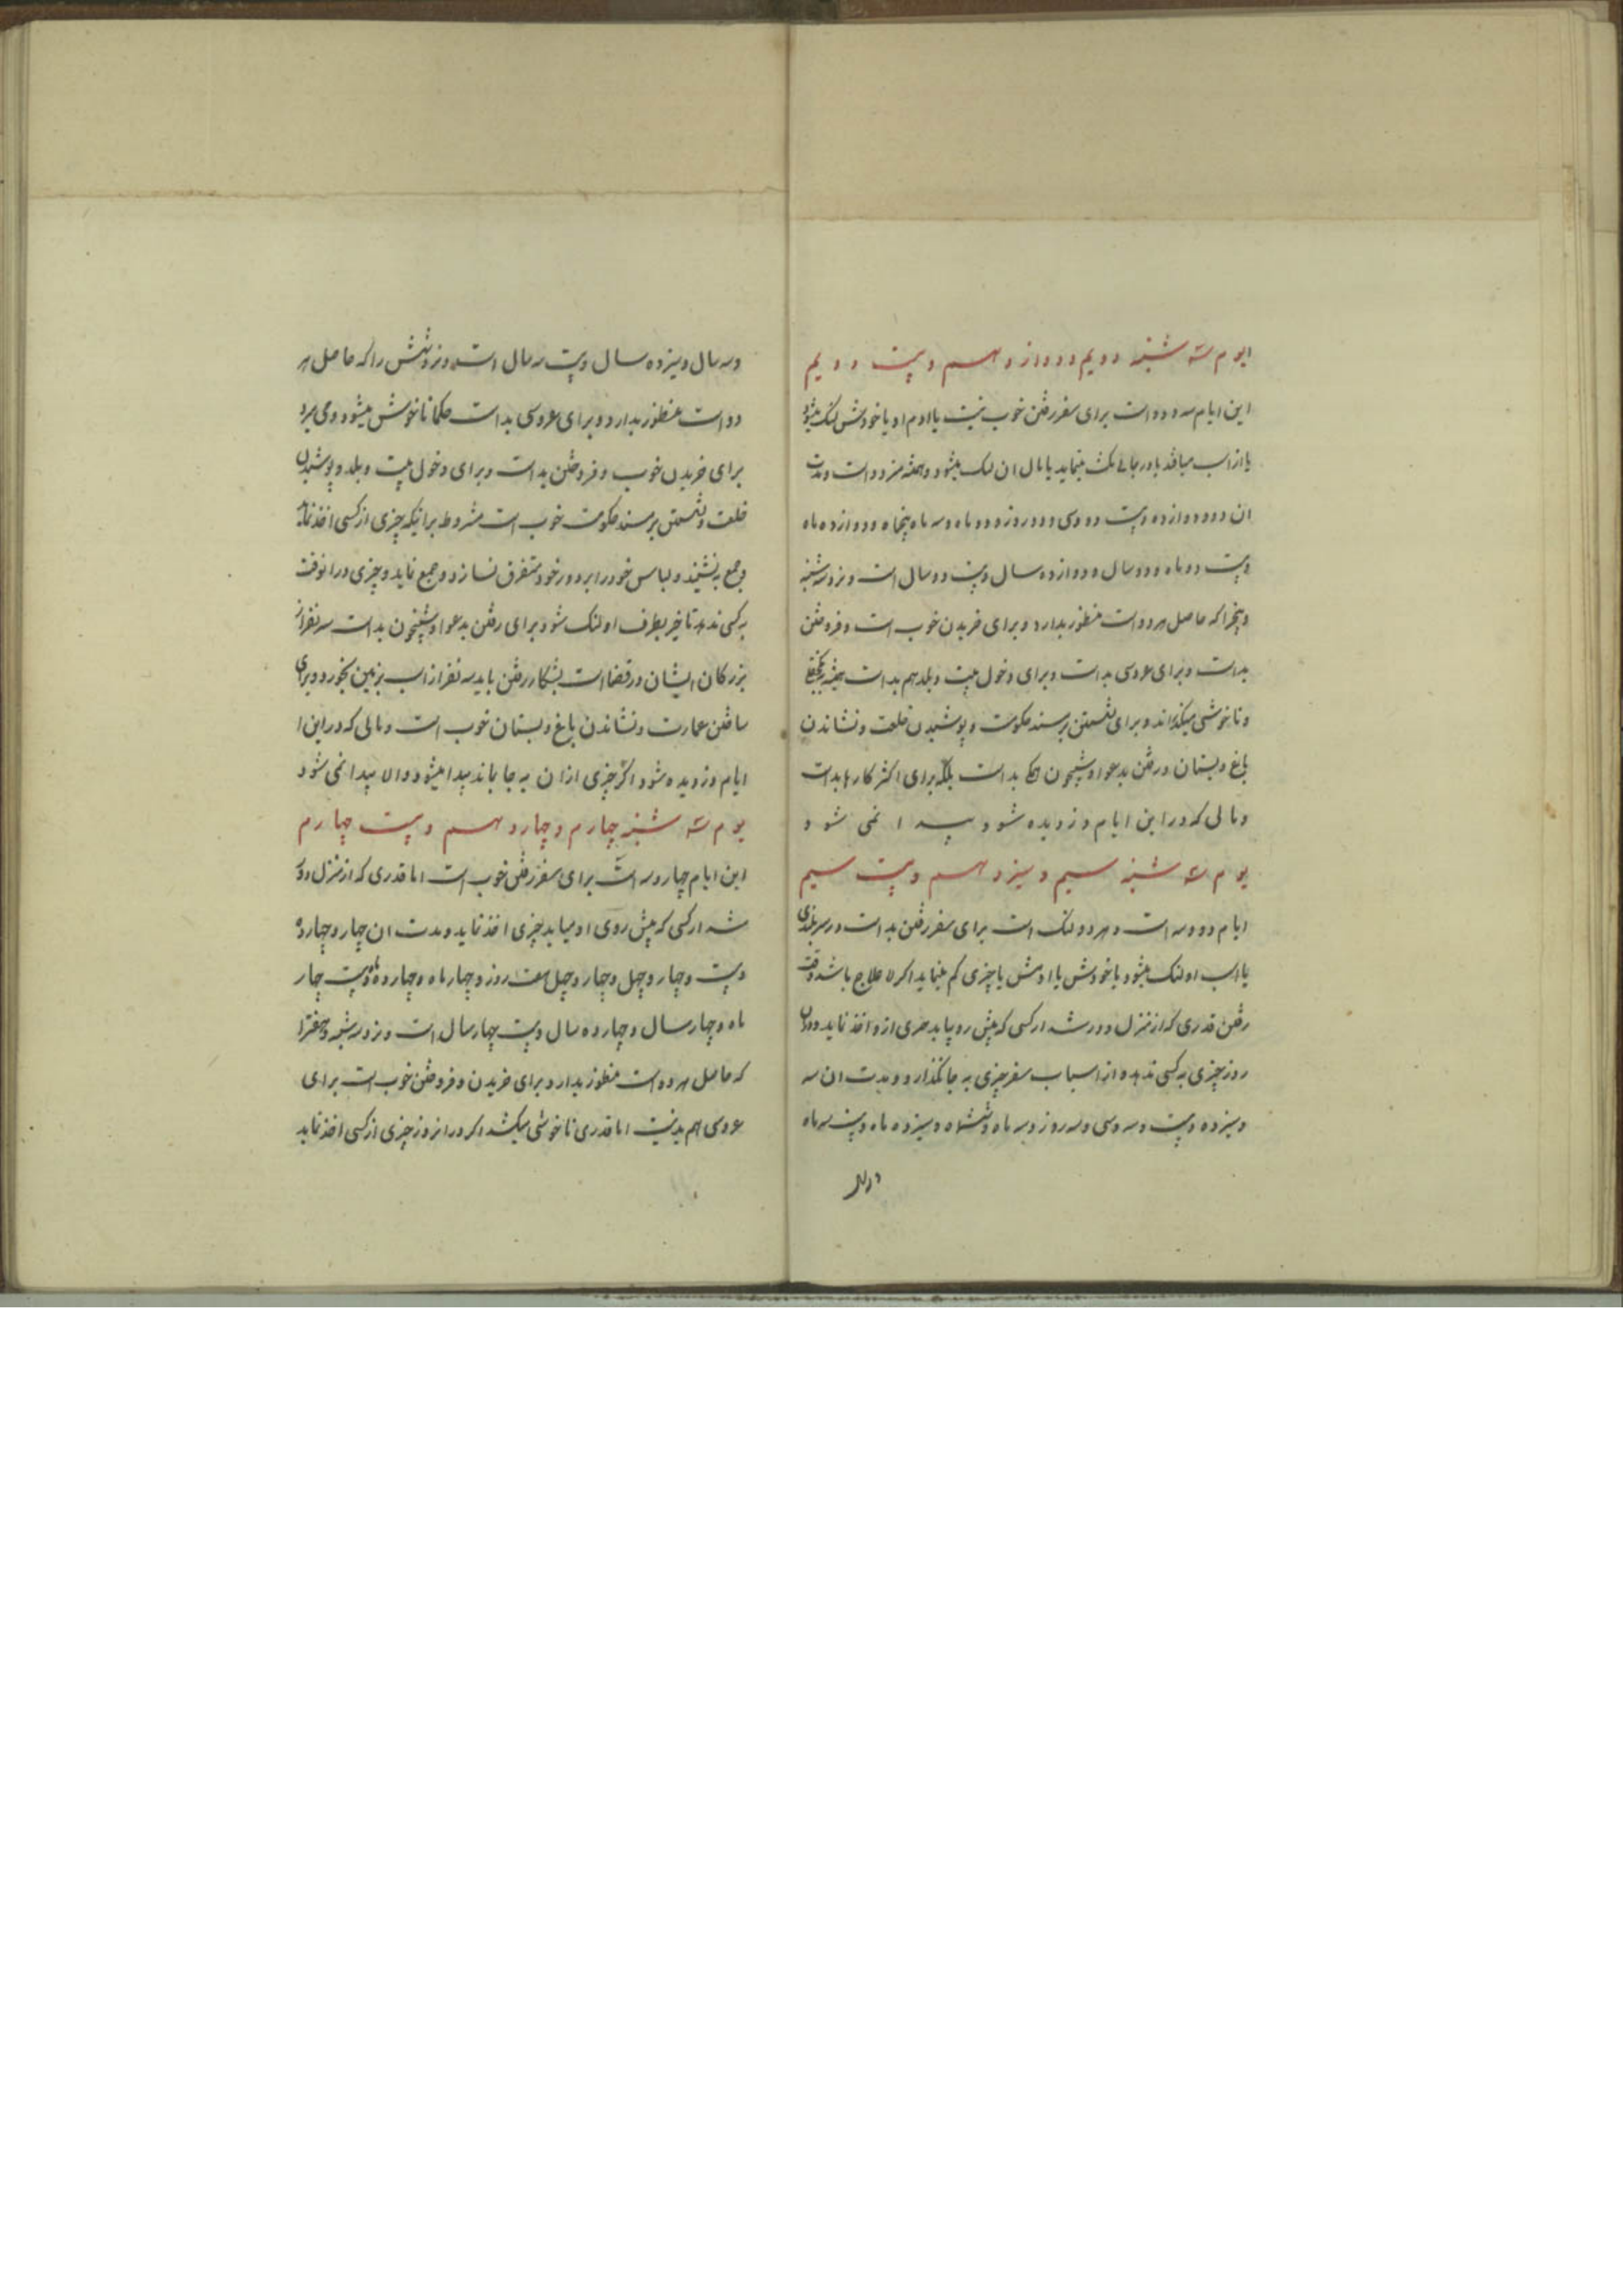 یوم سه شنبه دویم و دوازدهم و بیست و دویم
این ایام سه و دو است برای سفر رفتن خوب نیست یا ادم او یا خودش لنگ میشود
یا از اسب میافتد یا در جائی مکث مینماید یا مال ان لنگ میشود و است و مدت
ان دو و دوازده و بیست و دو و سی و دو روز و دو ماه و سه ماه پنجاه و دوازده ماه
و بیست دو ماه و دو سال و دوازده سال و بیست و دو سال است و روز سه شنبه
و پنجرا که حاصل هر دو است منظور بدارد و برای خریدن خوب است و فروختن
بد است و برای عروسی بد است و برای دخول بیت و بلد هم بد است
و ناخوشی میگذراند و برای نشستن بر مسند حکومت و پوشیدن خلعت و نشاندن
باغ و بستان و رفتن بدعوا و شبیخون بد است بلکه برای اکثر کارها بد است
و مالی که در این ایام دزدیده شود پیدا نمی شود
یوم سه شنبه سیم و سیزدهم و بیست سیم
ایام دو و سه است و هر دو لنگ است برای سفر رفتن بد است در سر بلندی
یا اسب او لنگ میشود یا خودش یا ادمش یا چیزی کم مینماید اگر لا علاج باشد وقت
رفتن قدری که از منزل دور شد از کسی که پیش رو بیاید چیزی از او اخذ نماید و در ان
روز چیزی به کسی ندهد و از اسباب سفر چیزی به جا نگذارد و مدت ان سه
و سیزده و بیست و سه و سی و سه روز و سه ماه و شش ماه و سیزده ماه و بیست سه ماه
و سه سال و سیزده سال و بیست سه سال است و روز شش را که حاصل هر
دو است منظور بدارد و برای عروسی بد است حکما ناخوش میشود و می میرد
برای خریدن خوب و فروختن بد است و برای دخول بیت و بلد و پوشیدن
خلعت و نشستن بر مسند حکومت خوب است مشروط بر اینکه چیزی از کسی اخذ نماید
و جمع بنشیند و لباس خود را بر دور خود متفرق نسازد و جمع نماید و چیزی در انوقت
به کسی ندهد تا خیر بطرف او لنگ شود برای رفتن بدعوا و شبیخون بد است سه نفر از
بزرکان ایشان در قضا است بشکار رفتن باید سه نفر از اسب بزمین بخورد و برای
ساختن عمارت و نشاندن باغ و بستان خوب است و مالی که در این ا
ایام دزدیده شود اگر چیزی از ان به جا بماند پیدا میشود و الا پیدا نمی شود
یوم سه شنبه چهارم و چهاردهم و بیست چهارم
این ایام چهار و سه است برای سفر رفتن خوب است اما قدری که از منزل دور
شد از کسی که پیش روی او میاید چیزی اخذ نماید و مدت ان چهار و چهارده
و بیست و چهار و چهل و چهار و چهل هفت روز و چهار ماه و چهارده ماه و بیست چهار
ماه و چهار سال و چهارده سال و بیست چهار سال است و روز سه شنبه و هفترا
که حاصل هر دو است منظور بدارد برای خریدن و فروختن خوب است برای
عروسی هم بد نیست اما قدری ناخوشی میکشد اگر در انروز چیزی از کسی اخذ نماید